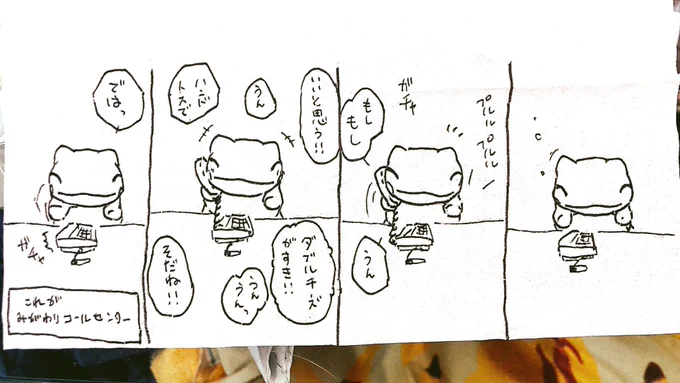 プルルル
プルルル
ガチャ
もし
もし
うん
いいと思う!!
うん
ダブルチーズ
がすき!!
うん
うんっ
そだね!!
ではっ
ガチャ
これが
みがわりコールセンター